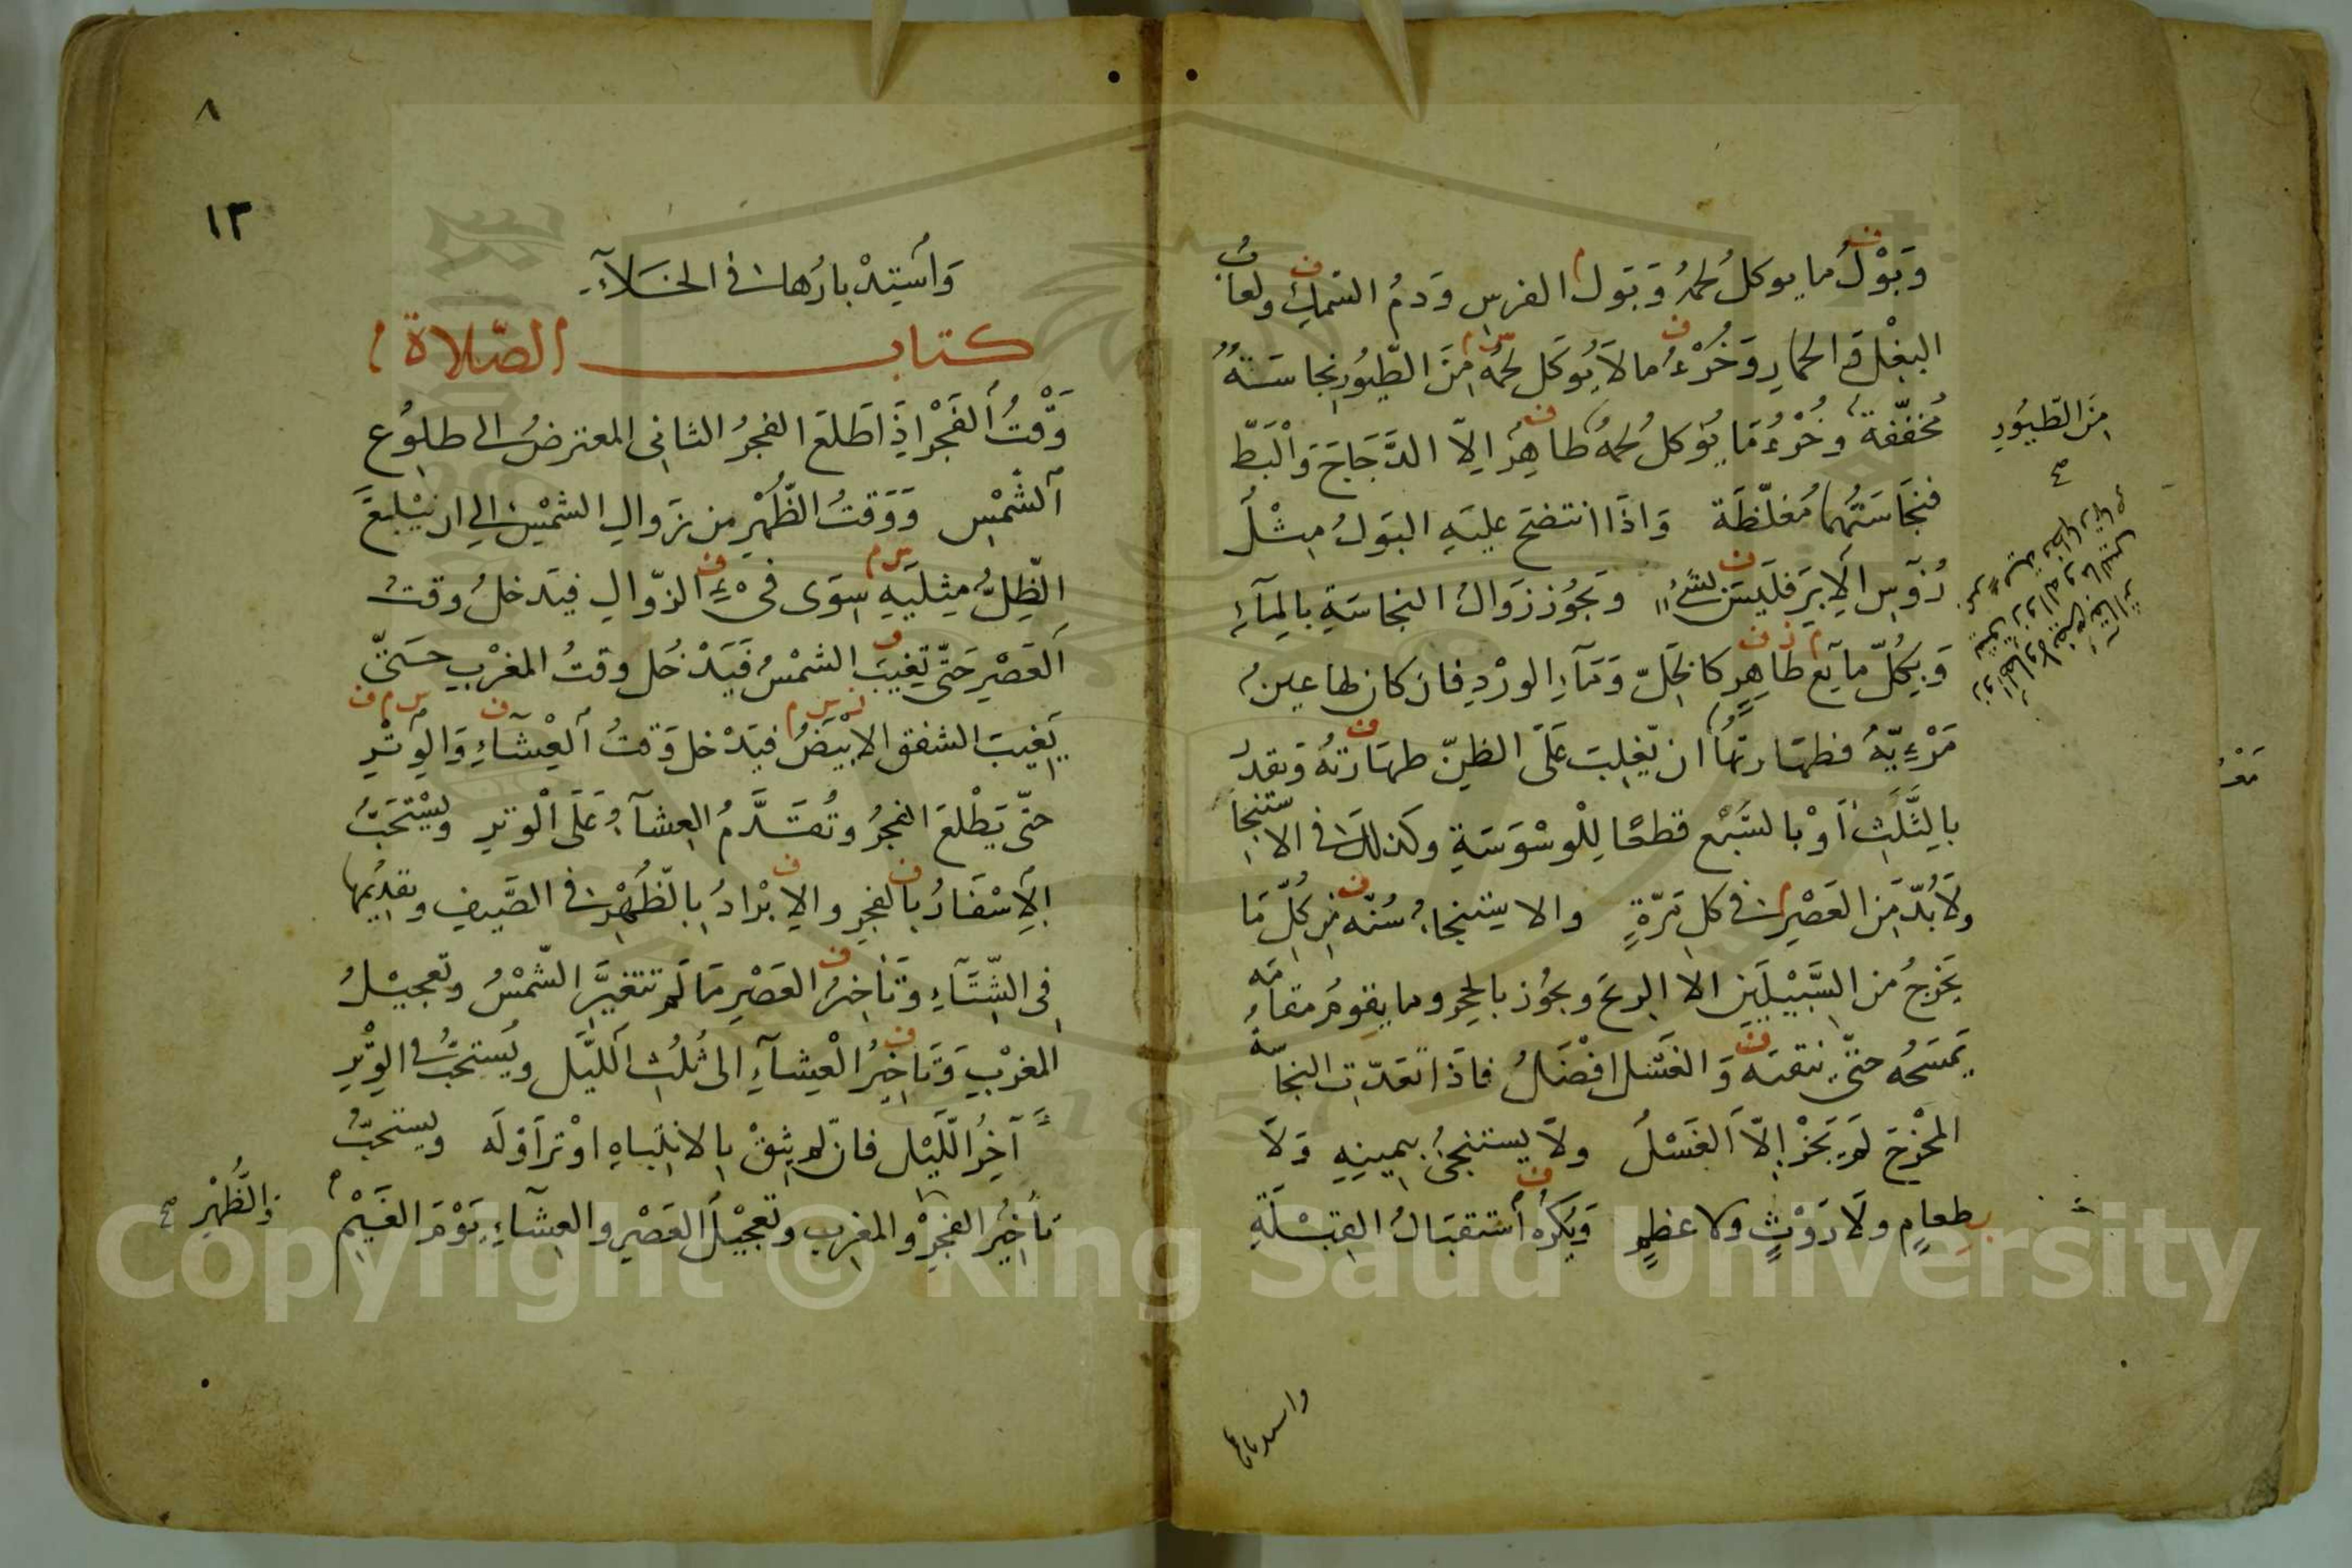 وَبَوْلُ ما يوكلُ لحمُهُ وَبَولُ الفرسِ وَدمُ السَّمكِ ولعابُ
البغْلِ وَالحمارِ وَخُرْءُ ما لَا يُوكَل لحمُهُ مِنَ الطّيُورِ نجاسَتهُ
مُخفّفة وخُرْءُ مَا يُوكلُ لحمُهُ طاهِرٌ اِلاّ الدَّجَاجَ وَالْبَطّ
فنجَاسَتُهُما مُغلّظَة وَاذَا انتضحَ عليَهِ البَولُ مِثْلُ
رُؤسِ الاِبَرِ فلَيسَ بشَيْءٍ وَيَجُوز زَوَالُ النجاسَةِ بالمِآءِ
وَبِكُلّ مآيع طاهِرٍ كالخَلّ وَمَآءِ الورْدِ فان كان لها عينٌ
مَرْءِيّةٌ فطهَارتهُا ان يَّغلِبَ عَلَى الظنّ طهَارَتهُ وَيقدرُ
بالثَّلثِ اَوْ بالسَّبْع قطعًا لِلْوسْوَسَةِ وكذلكَ فى الاستنجا
ولَابُدّ مَن العَصْرِ فى كل مَرّةٍ والاستنجاءُ سُنّه من كلّ مَا
يَخرَجُ من السَّبيْلَين الا الريحَ ويجُوز بالحجرِ وما يقومُ مقامَه
يَمسَحُه حتّى ينقيَه وَالغَسْل افْضَلُ فاذَا تعَدّتِ النجاسَة
المخْرَجَ لَمْ يَجُزْ اِلّا الغَسْلُ ولَا يستنجىُ بيمينِهِ وَلَا
بطعامٍ ولَا رَوْثٍ ولا عظمٍ وَيكْرَهُ استقبَالُ القِبْلَةِ
مِنَ الطّيُورِ
وَاستِدْبارُها فى الخَلآءِ
كتاب الصّلاة
وَقْتُ الفَجْرِ اِذَا طَلعَ الفجرُ الثانى المعترضُ الى طلوُع
الشّمْسِ وَوَقتُ الظّهْرِ من زَوالِ الشمْسِ الى ان يَبْلغَ
الظّلُّ مِثليَهِ سِوَى فَىْءِ الزّوالِ فيَدخلُ وقتُ
العَصْرِ حَتّى تغيبَ الشمْسُ فَيَدْخُل وقتُ المغْربِ حتىّ
يَغيبَ الشفق الابْيَضُ فيَدْخل وَقتُ العِشآءِ وَالوِتْرِ
حتّى يَطْلعَ الفجرُ وتُقدَّمُ العِشآءُ عَلَى الْوتِر ويُسْتحَبُّ
الاِسْفَارُ بالفجرِ والابْرَادُ بالظّهْرِ فى الصَّيفِ وتقدِيمُها
فى الشّتآءِ وَتَأخيرُ العَصْرِ مَا لَم تتغيّرِ الشّمْسُ وتعجيْلُ
المغْربِ وَتَاخيرُ الْعِشآءِ الى ثلُثِ اللّيَل ويُستحبُّ فى الوِتْرِ
آخِرُ اللّيْل فانّ لم يثقْ بالانتباهِ اوْتر اَوّلَه ويستحبُّ
تأخيرُ الفجرِ والمغرب وتعجيْل العَصْرِ والعِشاءِ يَوْمَ الغَيْمِ
وَالظُّهْرِ
٨
١٣